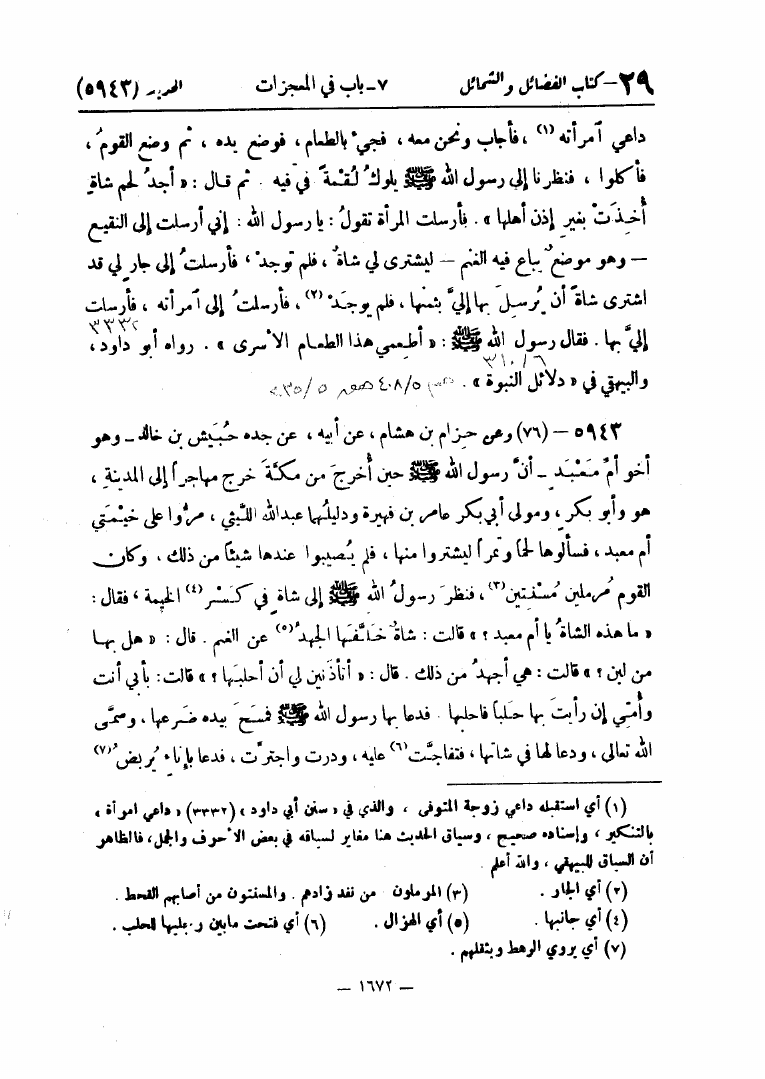 ٢٩ – كتاب الفضائل والشمائل ٧ – باب في المعجزات الحديث (٥٩٤٣)
داعي آمرأته (١) ، فأجاب ونحن معه ، فجيء بالطعام ، فوضع يده ، ثم وضع القومُ ،
فأكلوا ، فنظرنا إلى رسول الله ﷺ يلوكُ لُقمةً في فيه . ثم قال : « أجدُ لحمَ شاةٍ
أُخِذَتْ بغيرِ إذن أهلها » . فأرسلت المرأة تقولُ : يا رسول الله : إني أرسلت إلى النقيع
– وهو موضعٌ يباع فيه الغنم – ليشترى لي شاةٌ ، فلم توجدْ ، فأرسلتُ إلى جارٍ لي قد
اشترى شاةً أن يُرسِلَ بها إليَّ بثمنها ، فلم يوجَدْ (٢) ، فأرسلتُ إلى آمرأته ، فأرسلت
٣٣٣٢
إليَّ بها . فقال رسول الله ﷺ : « أطعمي هذا الطعام الأسرى » . رواه أبو داود ،
٣١٠/٦
والبيهقي في « دلائل النبوة » . ٤٠٨/٥ ٣٣٥/٥
٥٩٤٣ – (٧٦) وعن حِزام بن هشام ، عن أبيه ، عن جده حُبَيش بن خالد – وهو
أخو أمِّ مَعْبَدٍ – أنَّ رسول الله ﷺ حين أُخرجَ من مكَّةَ خرج مهاجراً إلى المدينةِ ،
هو وأبو بكرٍ ، ومولى أبي بكر عامر بن فهيرة ودليلُهما عبدالله اللَّيثي ، مرُّوا على خيْمتي
أم معبد ، فسألوها لحماً وتمراً ليشتروا منها ، فلم يُصيبوا عندها شيئاً من ذلك ، وكان
القوم مُرملين مُسْنِتين (٣) ، فنظرَ رسولُ الله ﷺ إلى شاةٍ في كَسْرِ (٤) الخيمة ، فقال :
« ما هذه الشاةُ يا أم معبد ؟ » قالت : شاةٌ خَلَّفَها الجهدُ (٥) عن الغنم . قال : « هل بها
من لبن ؟ » قالت : هي أجهدُ من ذلك . قال : « أتأذنين لي أن أحلبَها ؟ » قالت : بأبي أنت
وأمّي إن رأيتَ بها حَلباً فاحلبها . فدعا بها رسول الله ﷺ فمسَحَ بيده ضَرعها ، وسمَّى
الله تعالى ، ودعا لها في شاتها ، فتفاجَّت (٦) عليه ، ودرت واجترَّت ، فدعا بإناءٍ يُربِضُ (٧)
(١) أي استقبله داعي زوجة المتوفى ، والذي في « سنن أبي داود » (٣٣٣٢) « داعي امرأة »
بالتنكير ، وإسناده صحيح ، وسياق الحديث هنا مغاير لسياقه في بعض الأحرف والجمل ، فالظاهر
أن السياق للبيهقي ، والله أعلم .
(٢) أي الجار . (٣) المرملون من نفد زادهم . والمسنتون من أصابهم القحط .
(٤) أي جانبها . (٥) أي الهزال . (٦) أي فتحت مابين رجليها للحلب .
(٧) أي يروي الرهط ويثقلهم .
– ١٦٧٢ –